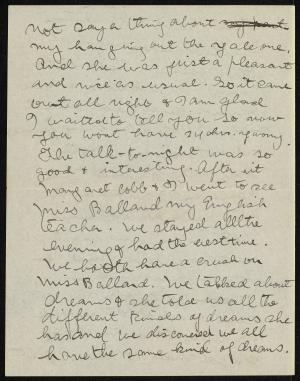 not say a thing about my part
my hanging out the Yale one.
And she was just a pleasant
and nice as usual. So it came
out all right & I am glad
I waited to tell you so now
you wont have
The talk to-night was so
good & interesting. After it
Margaret Cobb & I went to see
Miss Ballard my English
teacher. We stayed all the
evening & had the best time.
We both have a crush on
Miss Ballard. We talked about
dreams & she told us all the
different kinds of dreams she
has and we discovered we all
have the same kind of dreams.